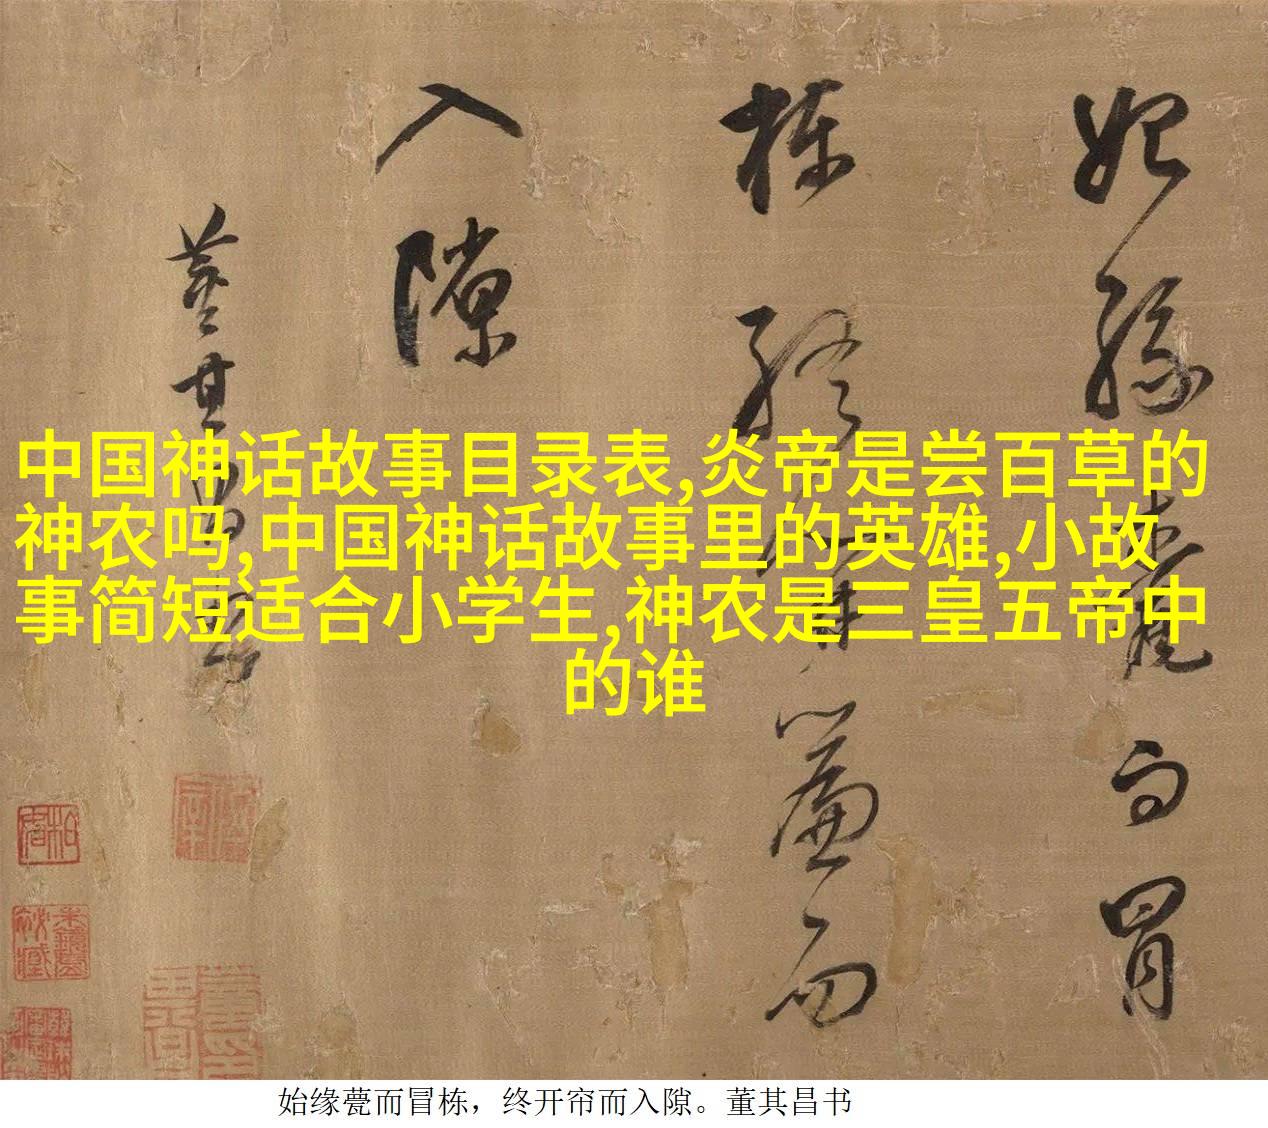 始緣甍而冒
棟終開簾而
入隙
董其昌書
中国神话故事目录表,炎帝是尝百草的
神农吗,中国神话故事里的英雄,小故
事简短适合小学生,神农是三皇五帝中
的谁
始缘甍而冒栋，终开帘而入隙。董其昌书